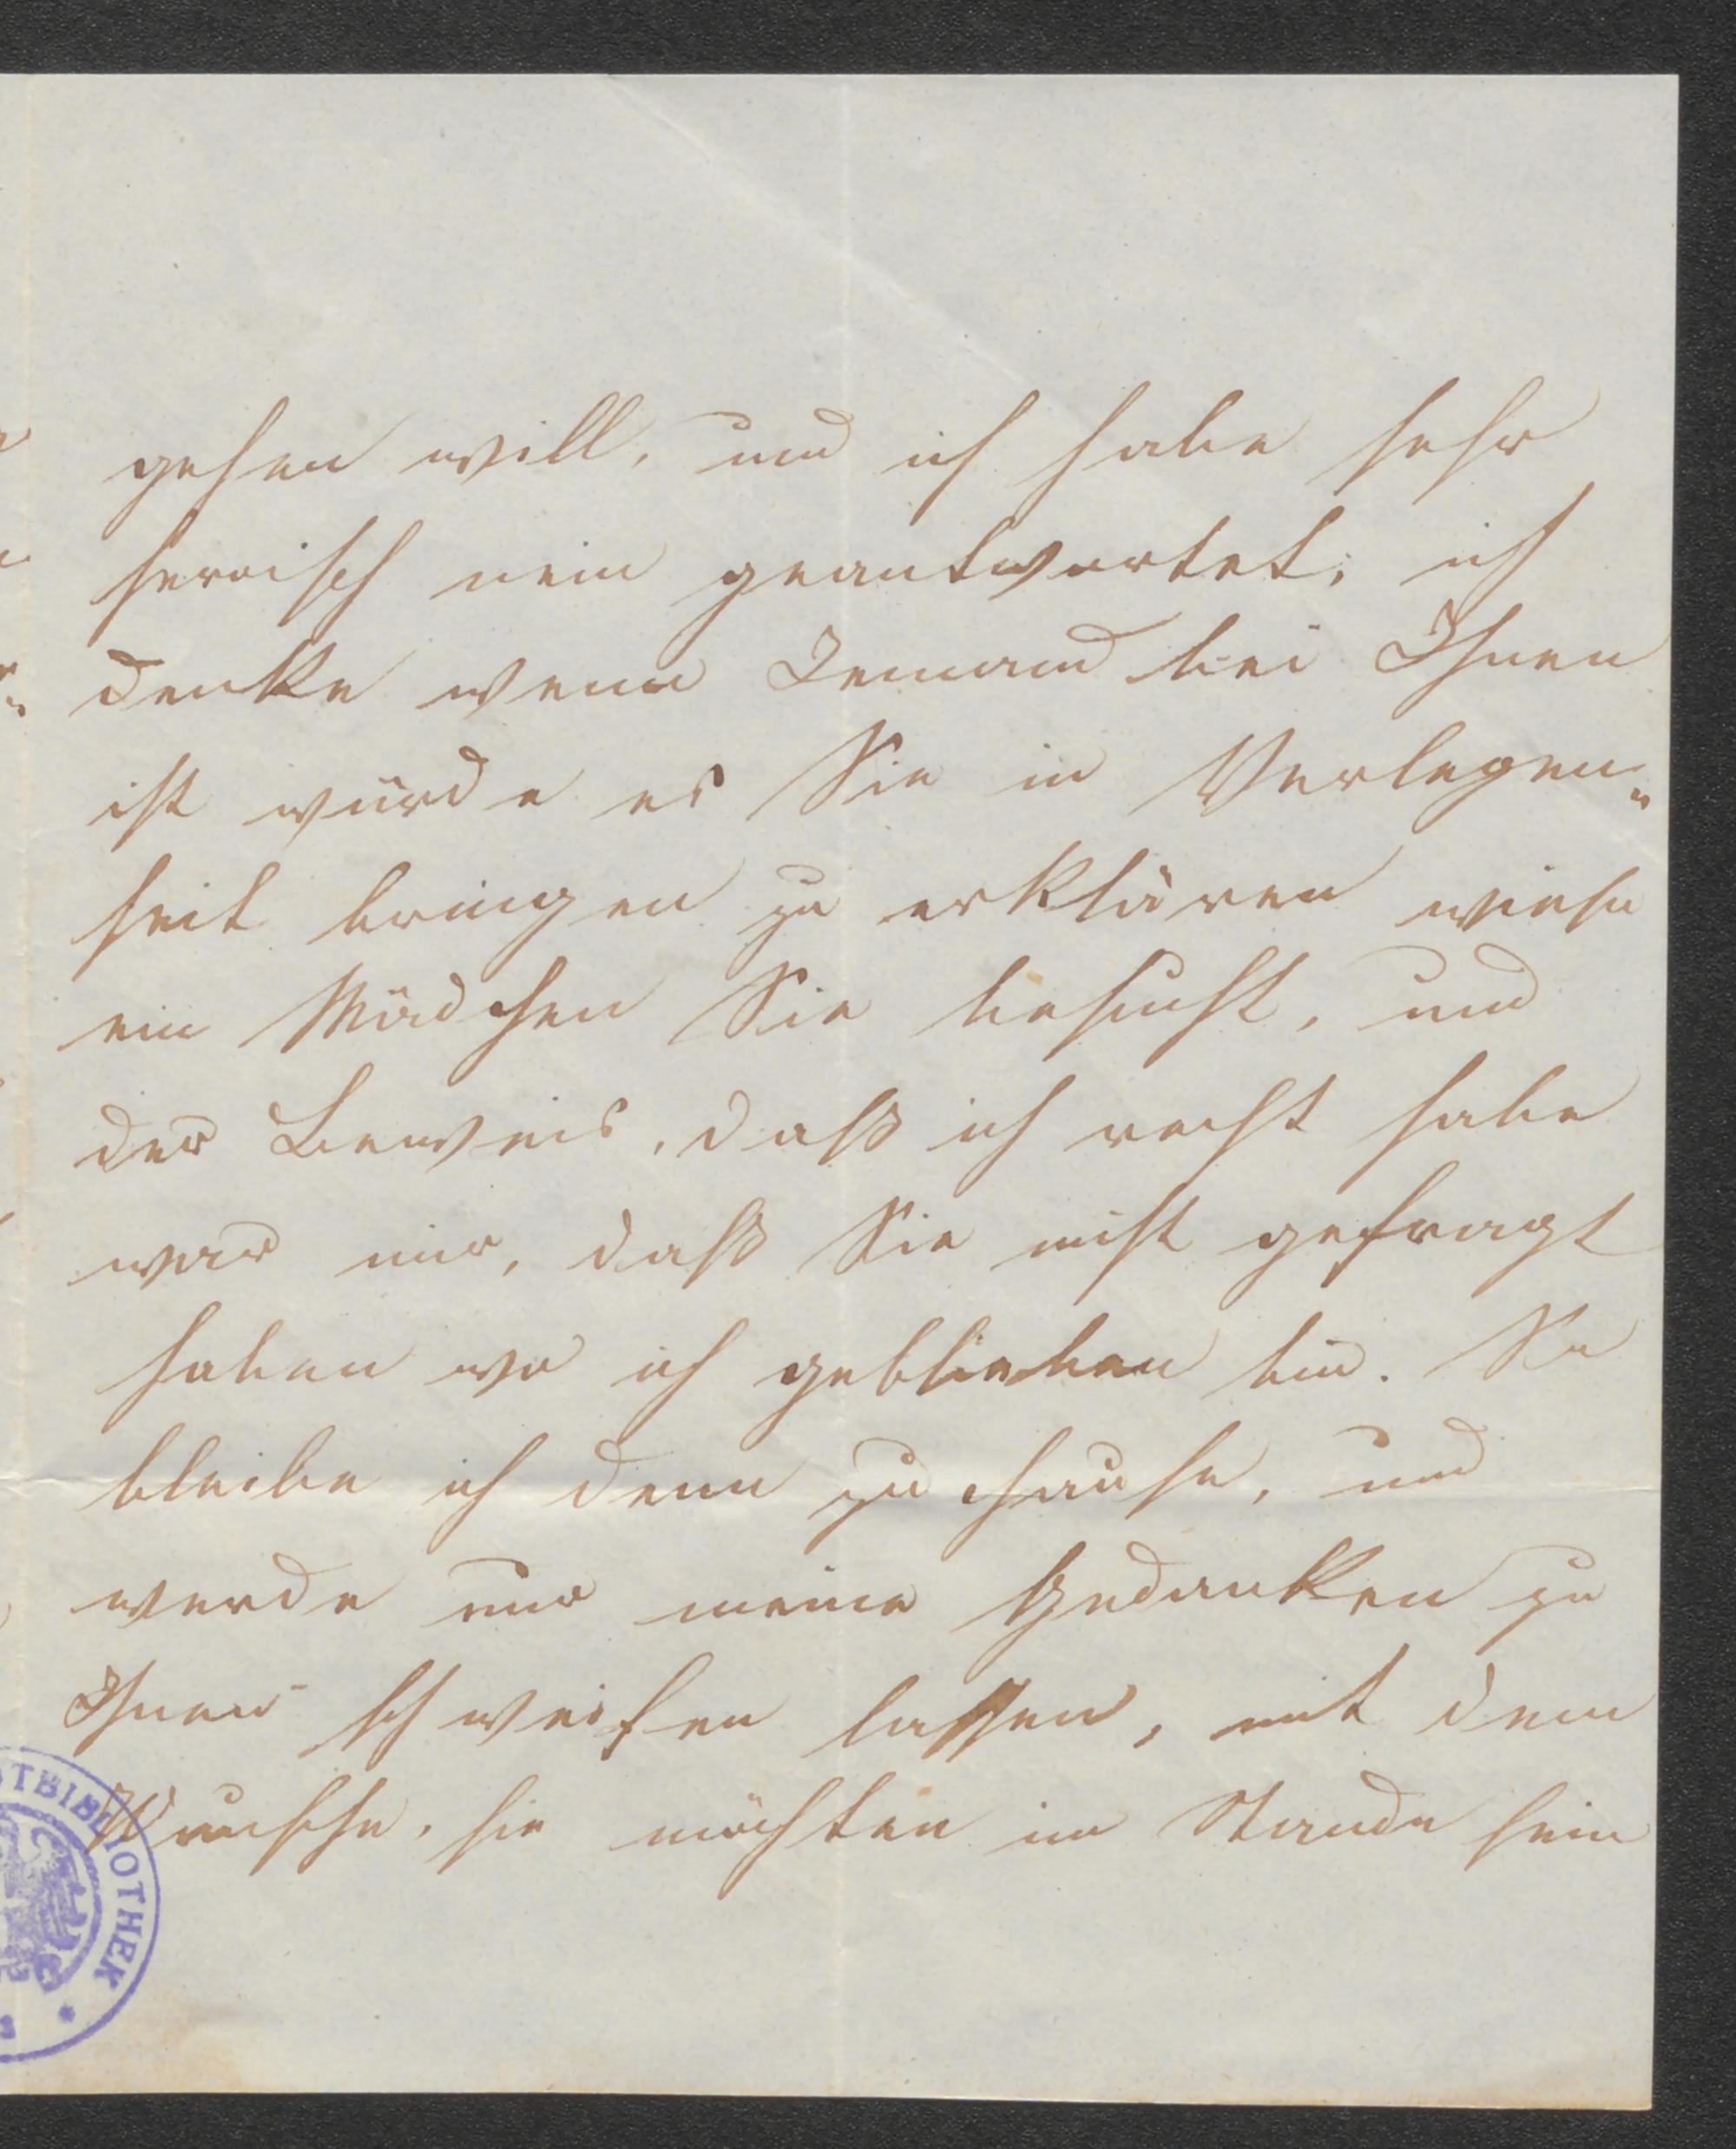 gehen will, und ich habe sehr
heroisch nein geantwortet; ich
denke wenn Jemand bei Ihnen
ist würde es Sie in Verlegen„
heit bringen zu erklären wieso
ein Mädchen Sie besucht, und
der Beweis, daß ich recht habe
war mir, daß Sie nicht gefragt
haben wo ich geblieben bin. So
bleibe ich denn zu Hause, und
werde nur meine Gedanken zu
Ihnen schweifen lassen, mit dem
Wunsche, sie möchten im Stande sein
TBIBLIOTHEK